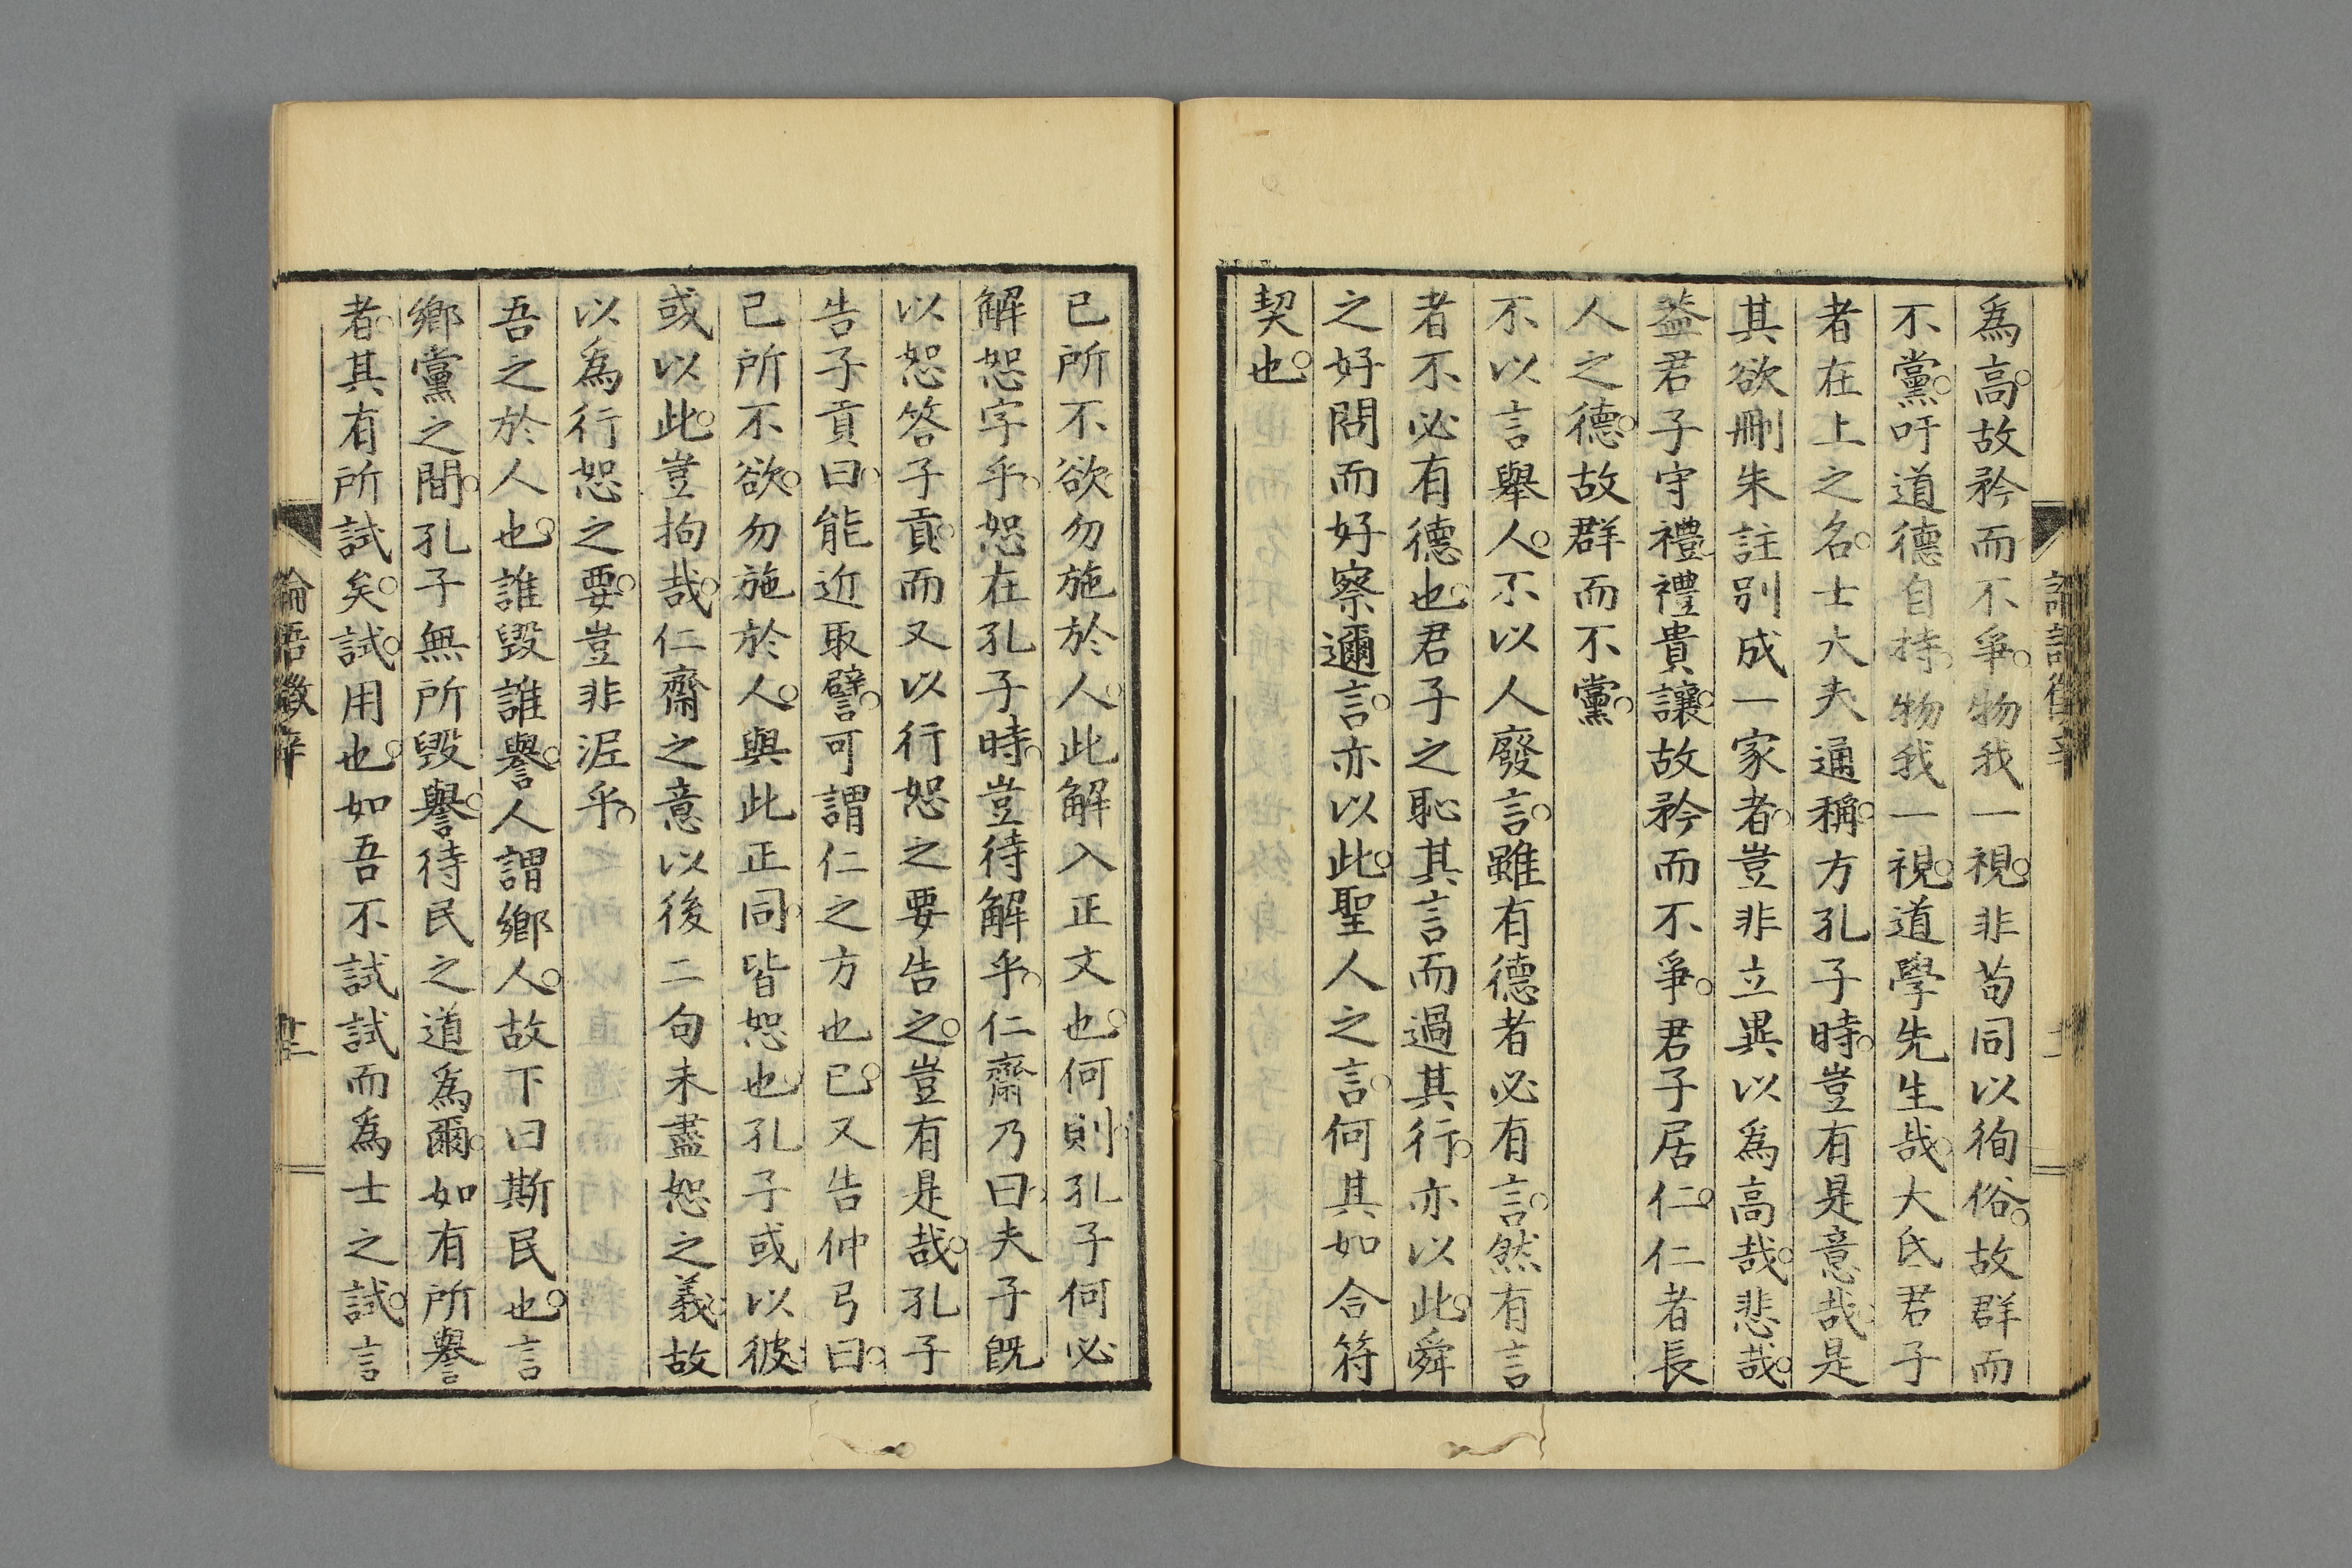 為高故矜而不爭物我一視非苟同以徇俗故群而
不黨吁道德自持物我一視道學先生哉大氐君子
者在上之名士大夫通稱方孔子時豈有是意哉是
其欲刪朱註別成一家者豈非立異以為高哉悲哉
蓋君子守禮禮貴讓故矜而不爭君子居仁仁者長
人之德故群而不黨
不以言舉人不以人廢言雖有德者必有言然有言
者不必有德也君子之恥其言而過其行亦以此舜
之好問而好察邇言亦以此聖人之言何其如合符
契也
已所不欲勿施於人此解入正文也何則孔子何必
解恕字乎恕在孔子時豈待解乎仁齋乃曰夫子既
以恕答子貢而又以行恕之要告之豈有是哉孔子
告子貢曰能近取譬可謂仁之方也已又告仲弓曰
己所不欲勿施於人與此正同皆恕也孔子或以彼
或以此豈拘哉仁齋之意以後二句未盡恕之義故
以為行恕之要豈非泥乎
吾之於人也誰毀誰譽人謂鄉人故下曰斯民也言
鄉黨之間孔子無所毀譽待民之道為爾如有所譽
者其有所試矣試用也如吾不試試而為士之試言
論語徵 廿二